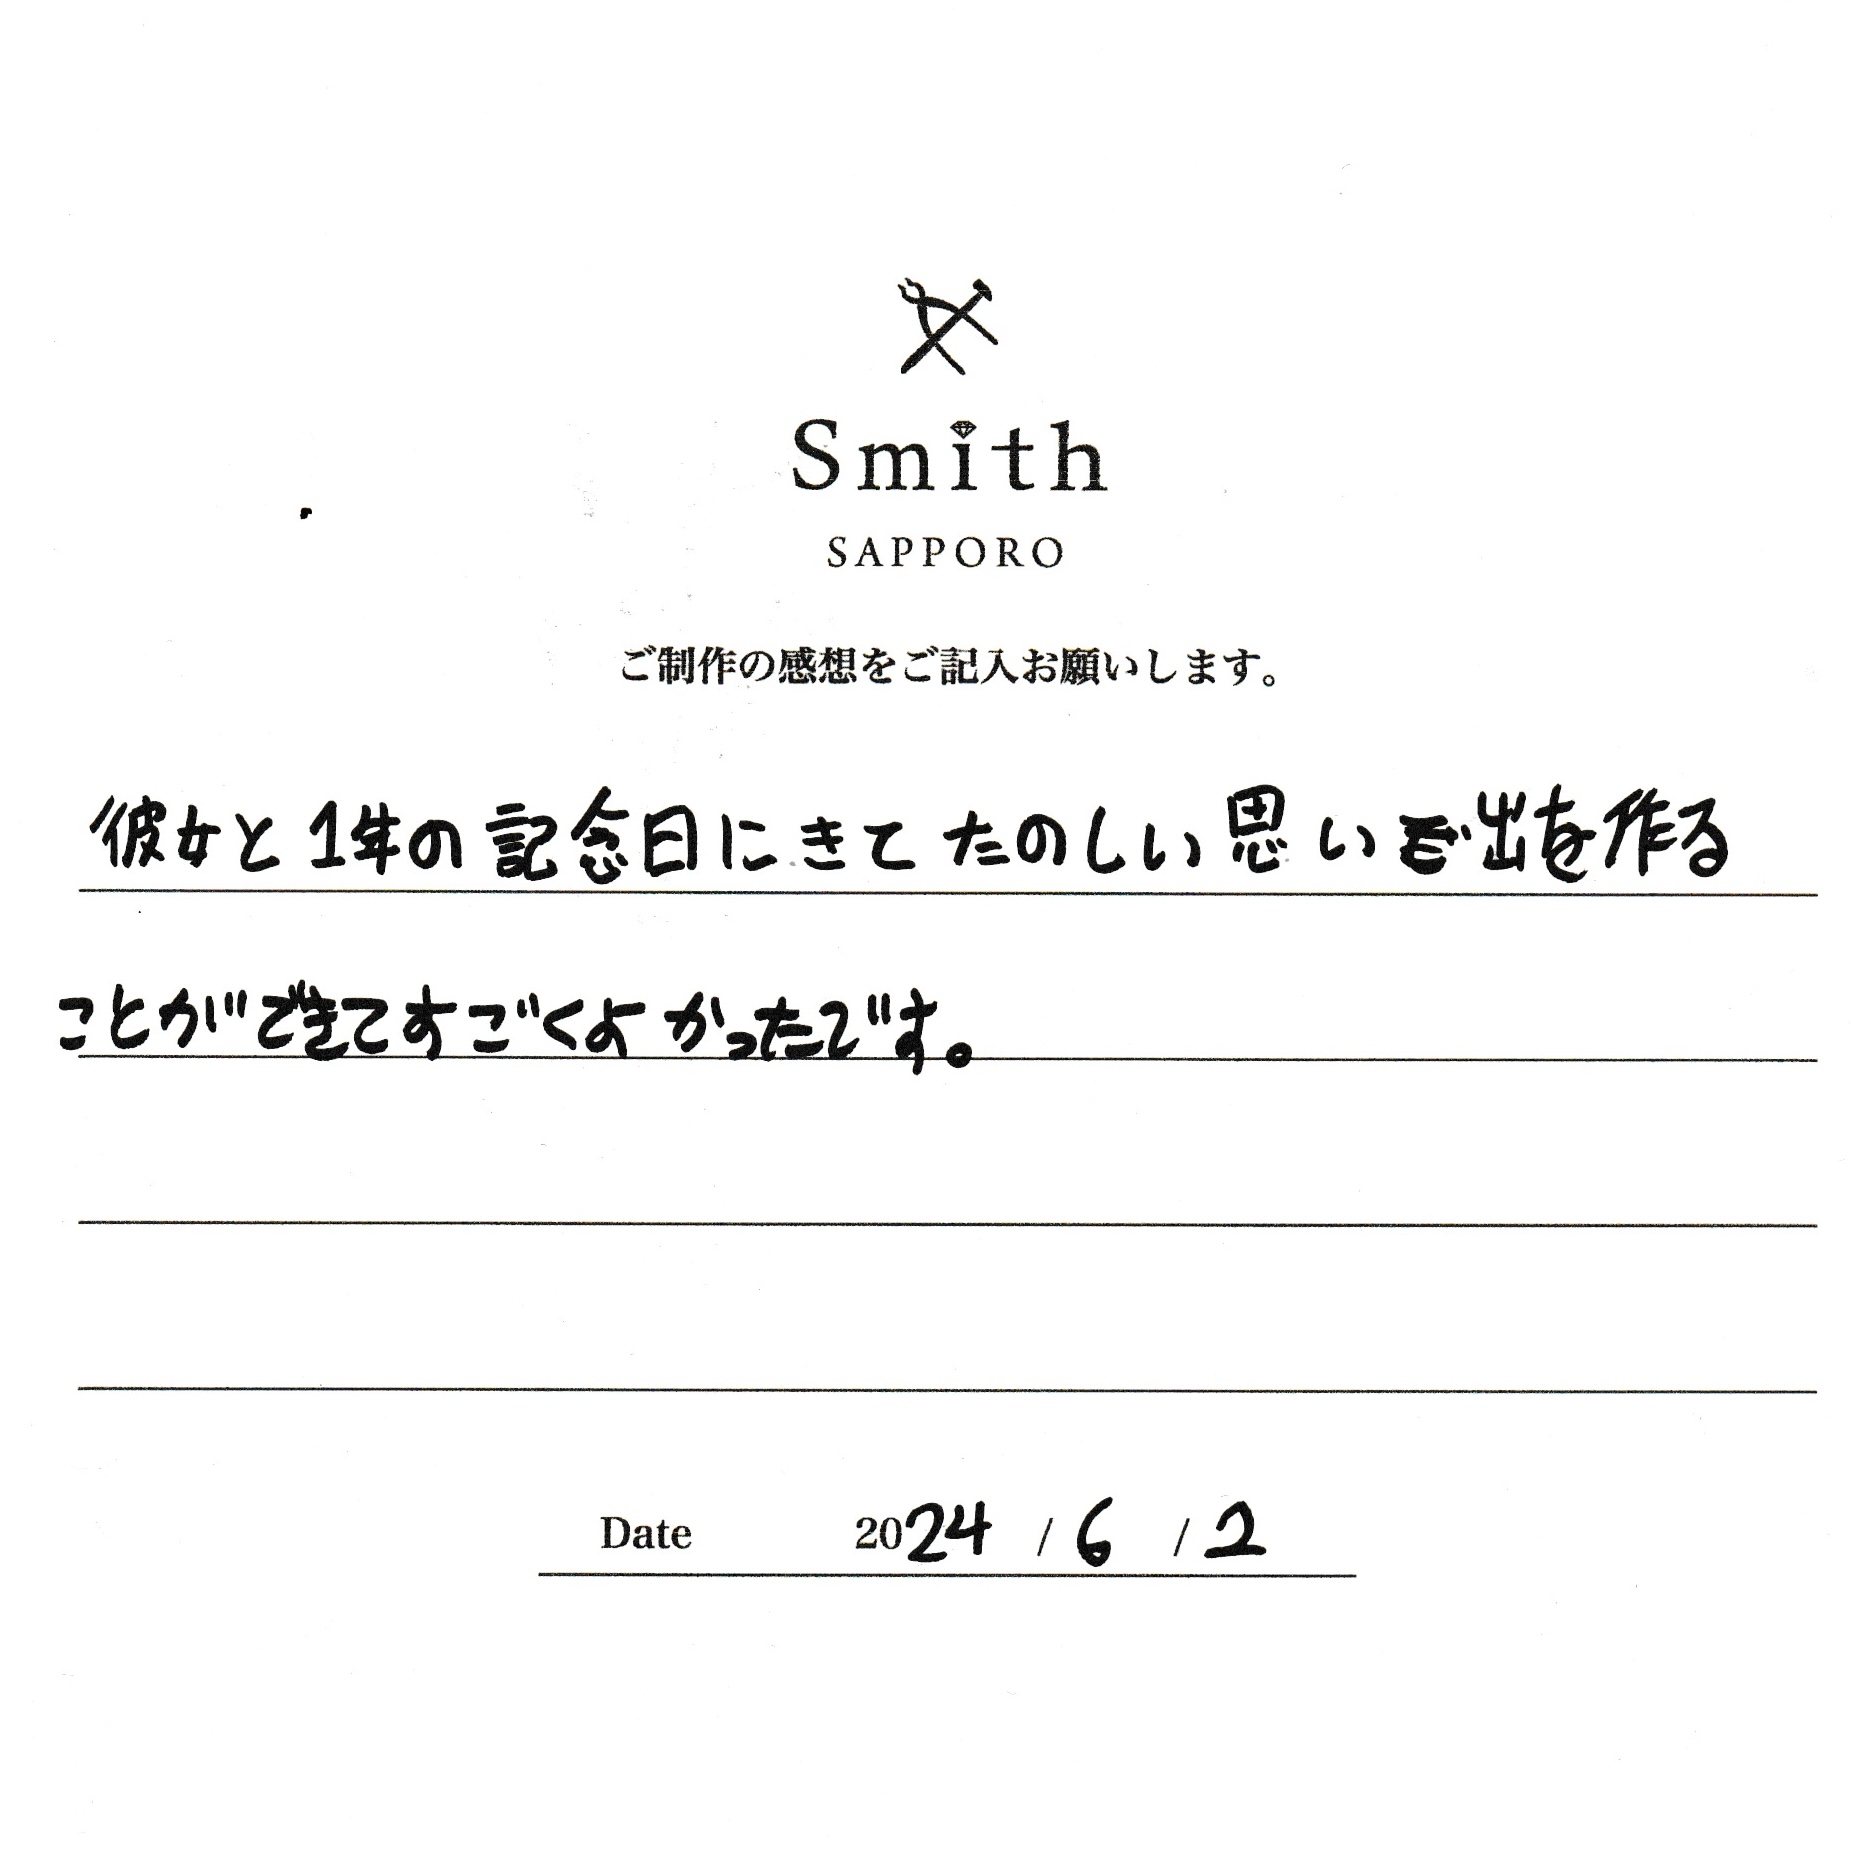 Smith
SAPPORO
ご制作の感想をご記入お願いします。
彼女と1年の記念日にきてたのしい思い出を作る
ことができてすごくよかったです。
Date 2024 / 6 / 2